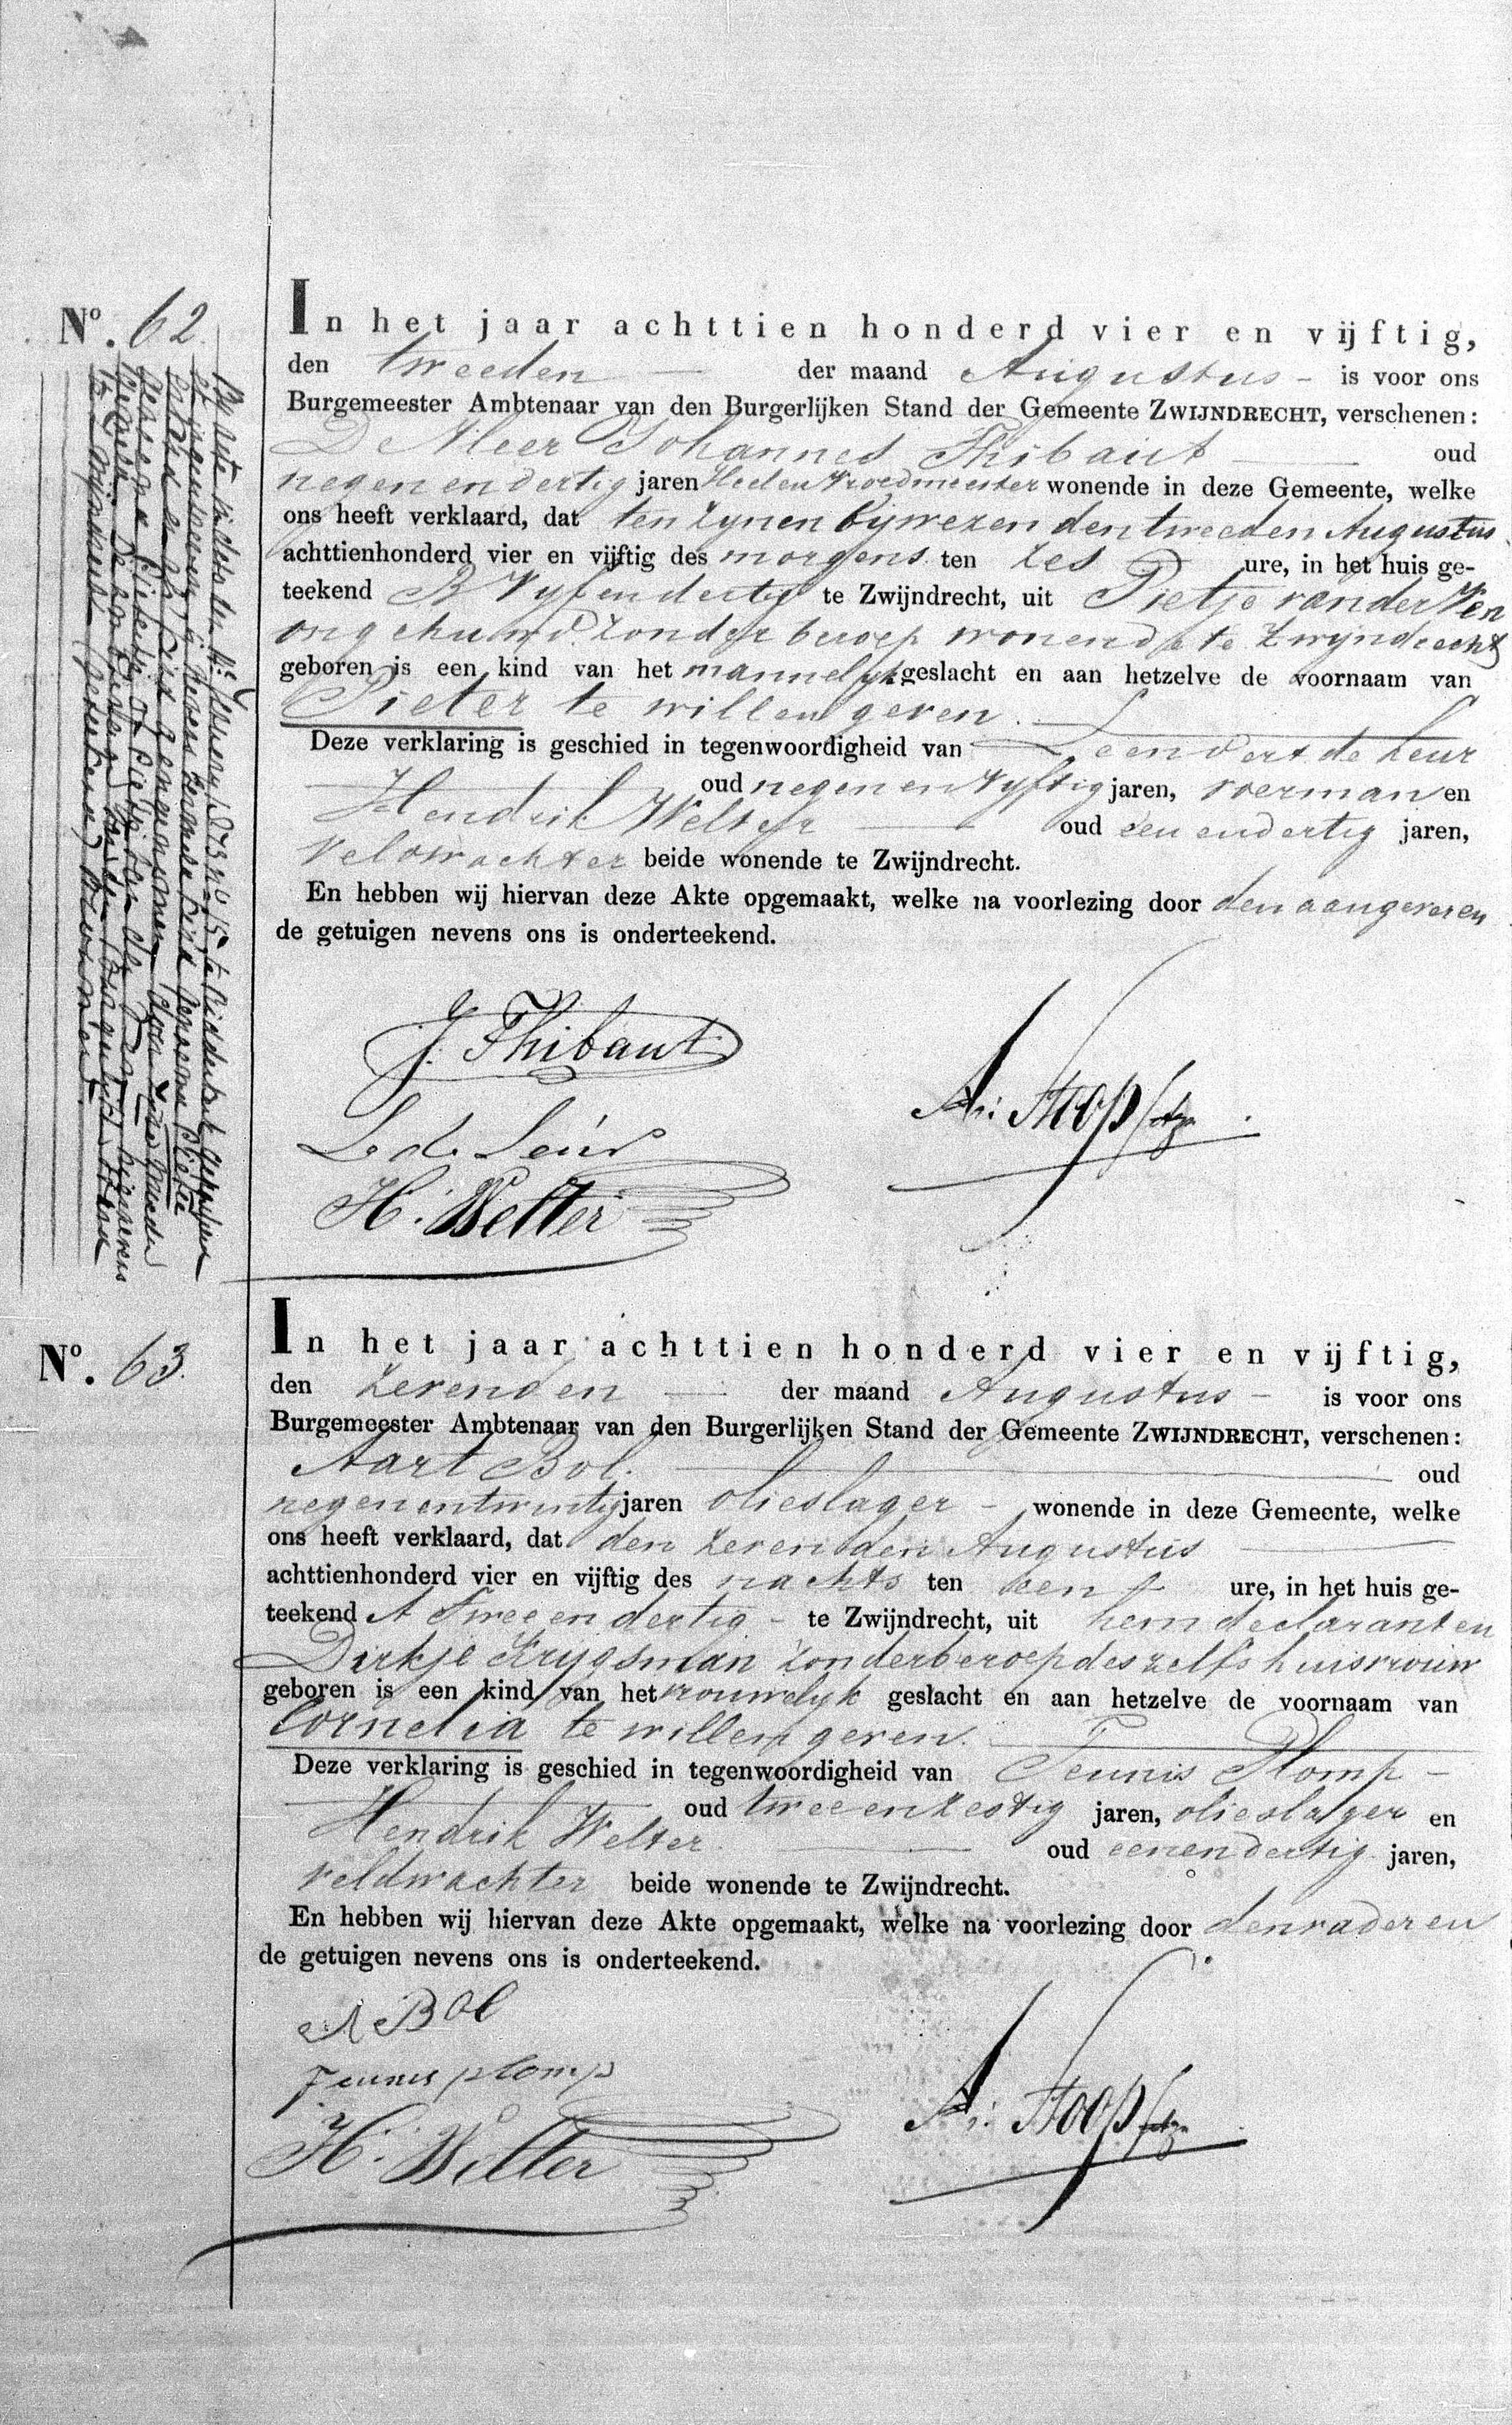 No. 62.
In het jaar achttien honderd vier en vijftig,
den tweeden der maand Augustus is voor ons
Burgemeester Ambtenaar van den Burgerlijken Stand der Gemeente ZWIJNDRECHT, verschenen:
De Heer Johannes Thibaut oud
negen en dertig jaren Heel en Vroedmeester wonende in deze Gemeente, welke
ons heeft verklaard, dat ten zynen bywezen den tweeden Augustus
achttienhonderd vier en vijftig des morgens ten zes ure, in het huis ge-
teekend B Vyf en dertig te Zwijndrecht, uit Pietje van der Ven
ongehuwd zonder beroep wonende te Zwyndrecht
geboren is een kind van het mannelyk geslacht en aan hetzelve de voornaam van
Pieter te willen geven.
Deze verklaring is geschied in tegenwoordigheid van Leendert de Leur
oud negen en vyftig jaren, voerman en
Hendrik Welter oud een en dertig jaren,
veldwachter beide wonende te Zwijndrecht.
En hebben wij hiervan deze Akte opgemaakt, welke na voorlezing door den aangever en
de getuigen nevens ons is onderteekend.
J. Thibaut
L. de Leur
H. Welter
A: Stoop
No. 63.
In het jaar achttien honderd vier en vijftig,
den zevenden der maand Augustus is voor ons
Burgemeester Ambtenaar van den Burgerlijken Stand der Gemeente ZWIJNDRECHT, verschenen:
Aart Bol. oud
negen en twintig jaren olieslager wonende in deze Gemeente, welke
ons heeft verklaard, dat den zevenden Augustus
achttienhonderd vier en vijftig des nachts ten een ure, in het huis ge-
teekend A Twee en dertig te Zwijndrecht, uit hem declarant en
Dirkje Krygsman zonder beroep deszelfs huisvrouw
geboren is een kind van het vrouwelyk geslacht en aan hetzelve de voornaam van
Cornelia te willen geven.
Deze verklaring is geschied in tegenwoordigheid van Teunis Plomp
oud twee en zestig jaren, olieslager en
Hendrik Welter oud een en dertig jaren,
veldwachter beide wonende te Zwijndrecht.
En hebben wij hiervan deze Akte opgemaakt, welke na voorlezing door den vader en
de getuigen nevens ons is onderteekend.
A Bol
Teunis plomp
H. Welter
A: Stoop